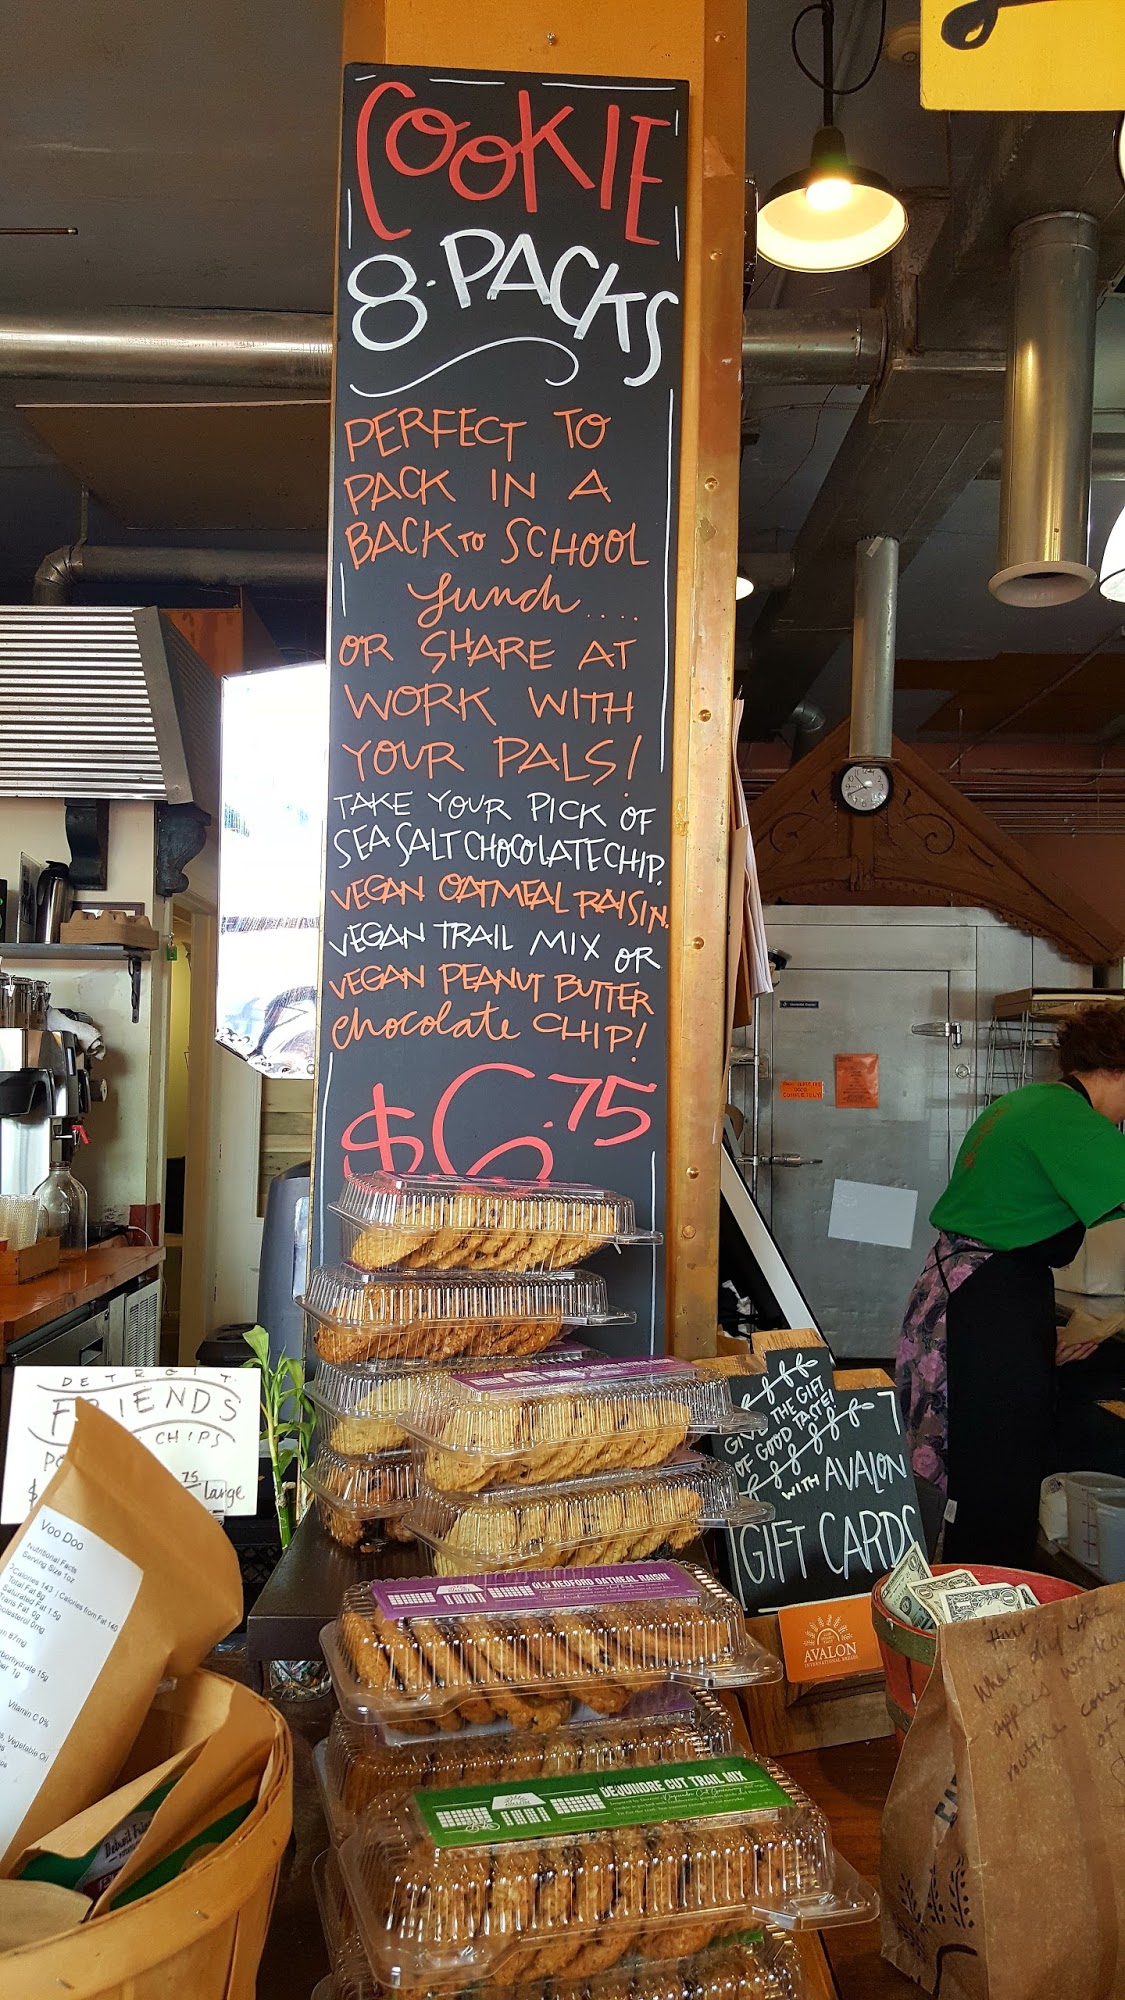 COOKIE
8·PACKS
PERFECT TO
PACK IN A
BACK TO SCHOOL
Lunch....
OR SHARE AT
WORK WITH
YOUR PALS!
TAKE YOUR PICK OF
SEA SALT CHOCOLATE CHIP,
VEGAN OATMEAL RAISIN,
VEGAN TRAIL MIX OR
VEGAN PEANUT BUTTER
chocolate CHIP!
$6.75
DETROIT
FRIENDS
CHIPS
PO
$
75
Large
Voo Doo
Nutritional Facts
Serving Size 1oz
Calories 143 Calories from Fat 140
Total Fat 8g
Saturated Fat 1.5g
Trans Fat 0g
Cholesterol 0mg
67mg
Carbohydrate 15g
1g
Vitamin C 0%
Vegetable Oil
GIVE THE GIFT
OF GOOD TASTE!
WITH AVALON
GIFT CARDS
AVALON
INTERNATIONAL BREADS
OLD REDFORD OATMEAL RAISIN
DEQUINDRE CUT TRAIL MIX
Detroit
What did
apples
routine